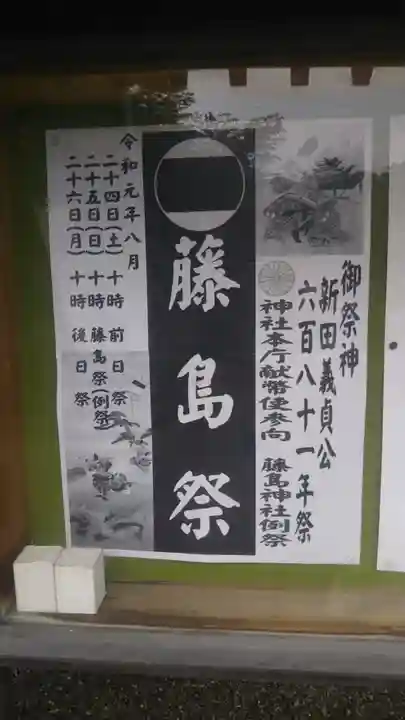 御祭神
新田義貞公
六百八十一年祭
神社本庁献幣使参向 藤島神社例祭
藤島祭
令和元年八月
二十四日(土)十時 前日祭
二十五日(日)十時 藤島祭(例祭)
二十六日(月)十時 後日祭